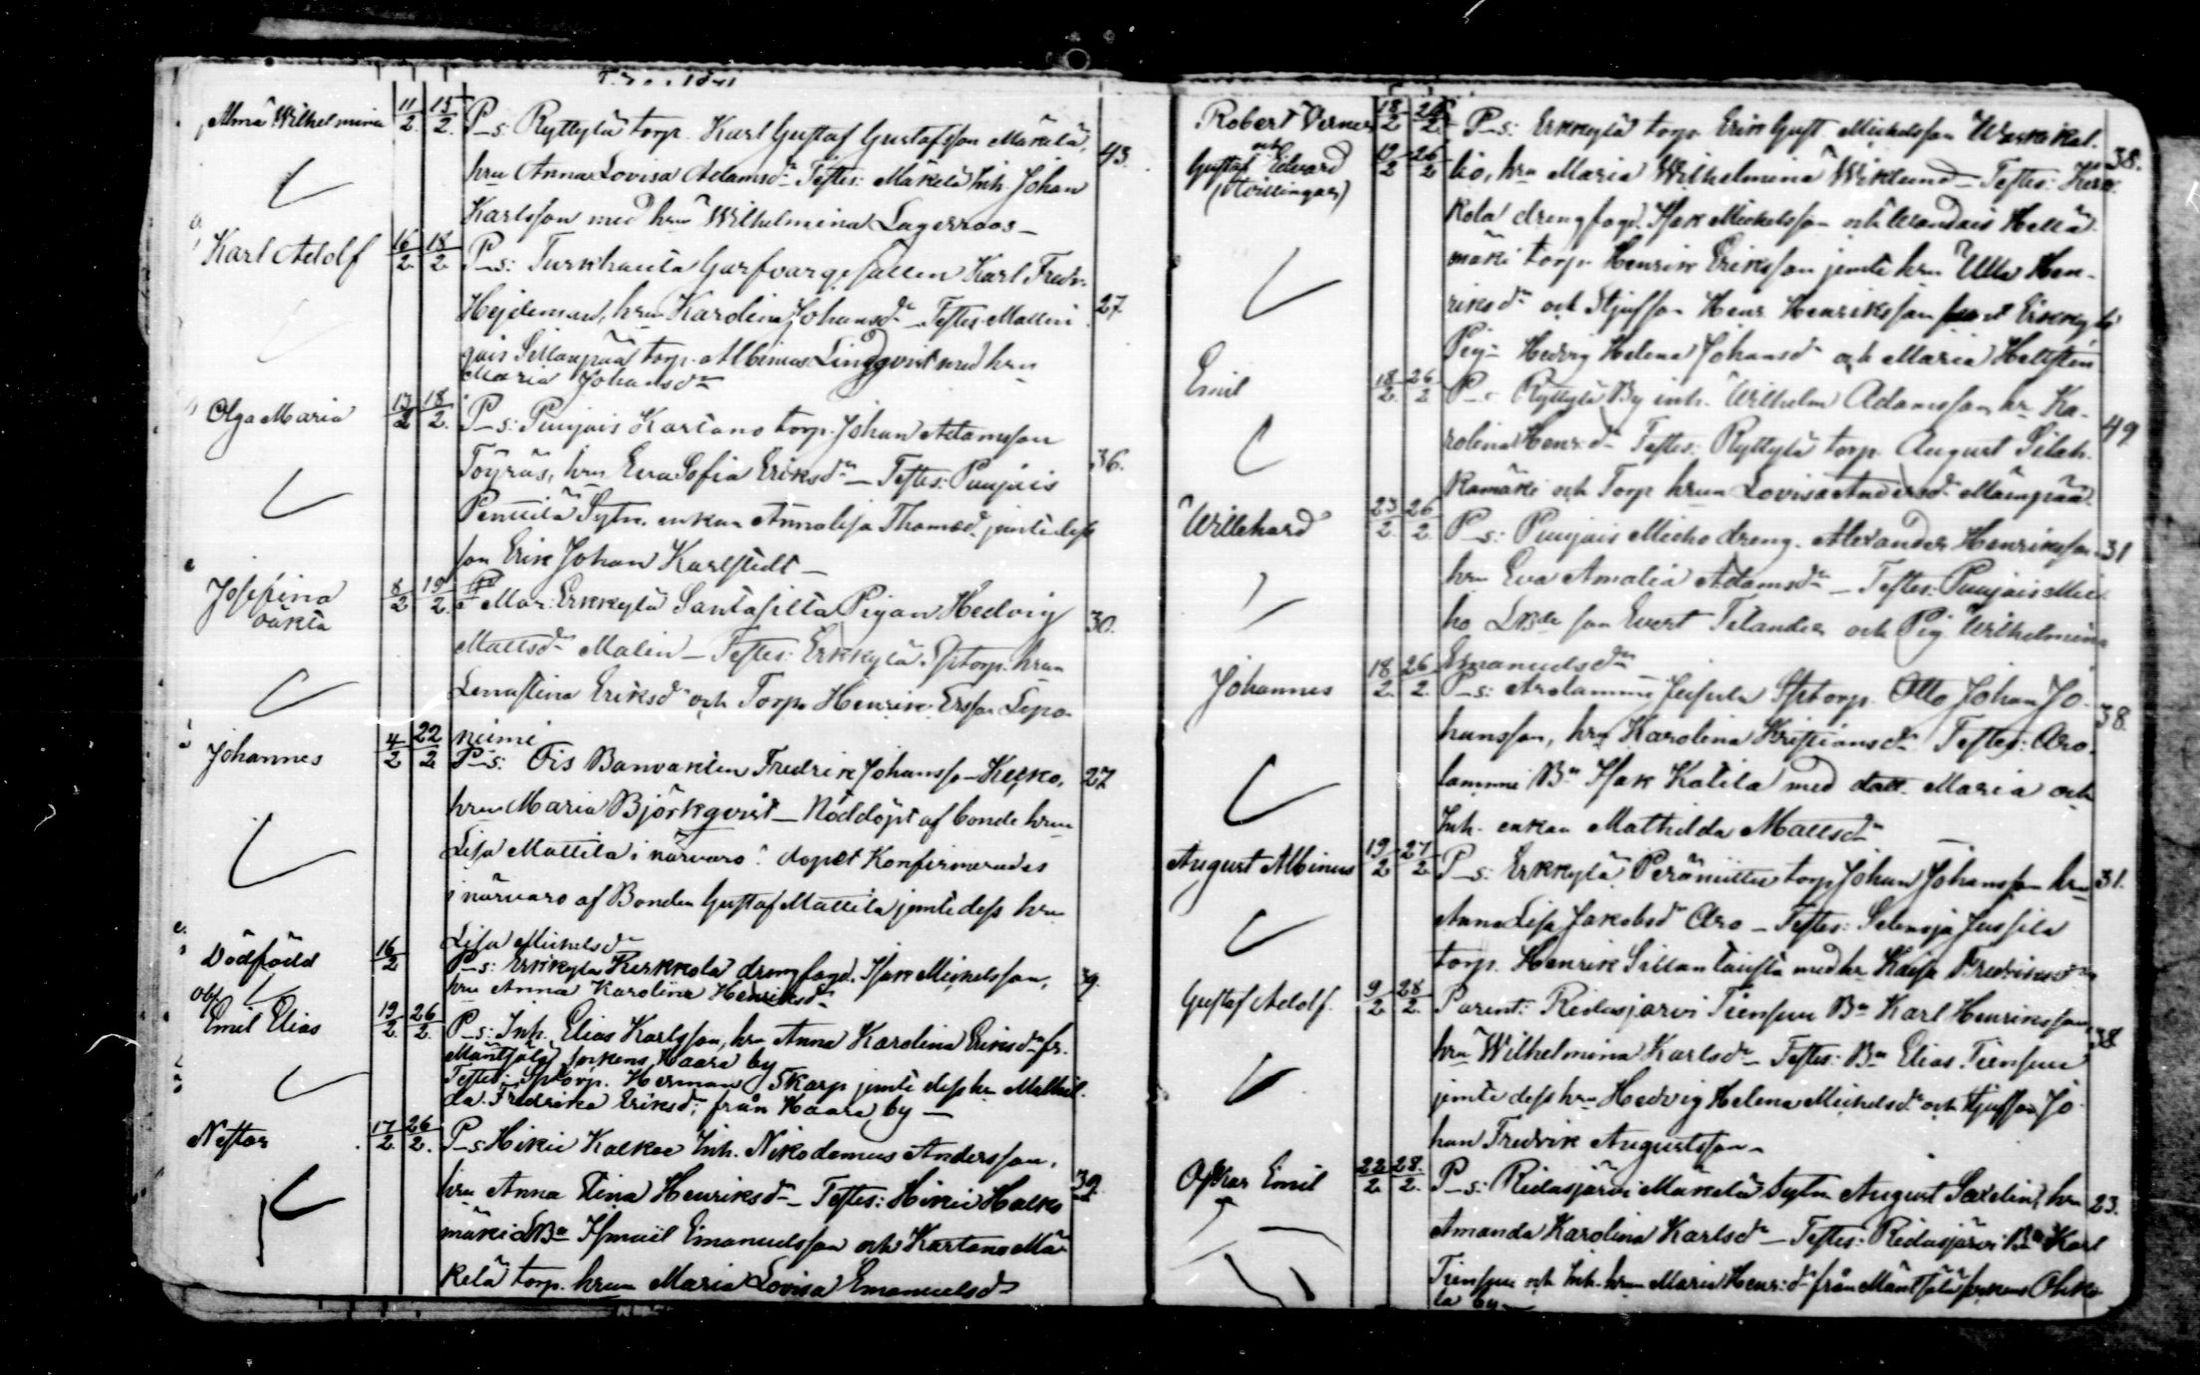 Alma Wilhelmina 11/2 15/2 P_s: Ryttylä torp. Karl Gustaf Gustafsson Mäkelä, 43.
hru Anna Lovisa Adamsdr Testes: Mäkelä Inh. Johan
Karlsson med hru Wilhelmina Lagerroos
Karl Adolf 16/2 18/2 P_s: Turkhauta Garfvaregesällen Karl Fredr.
Hejdeman, hru Karolina Johansdr Testes 27.
Sillanpää torp. Albinus Lindqvist med hru
Maria Johansdr
Olga Maria 13/2 18/2 P_s: Puujais Kartano torp. Johan Adamsson
Töyräs, hru Eva Sofia Eriksdr Testes: Puujais 36.
Penttilä Sytn. enkan Annalisa Thomasdr jemte dess
son Erik Johan Karlstedt
Josefina 8/2 19/2 Mor: Erkkylä Santasilta Pigan Hedvig 30.
oäkta
Mattsdr Malin Testes: Erkkylä Sptorp. hrun
Lenastina Eriksdr och Torp. Henrik Ersson Lepo-
niemi
Johannes 4/2 22/2 P_s: Ois Banvakten Fredrik Johansson 27
hru Maria Björkqvist Nöddöpt af bonde hrun
Lisa Mattila i närvaro: dopet Konfirmerades
i närvaro af Bonden Gustaf Mattila jemte dess hru
Lisa Michelsdr
Dödfödd 16/2 P_s: Erkkylä Kerkkola drengfogd. Isak Michelsson, 39.
hru Anna Karolina Henriksdr
Emil Elias 19/2 26/2 P_s: Inh. Elias Karlsson, hru Anna Karolina Eriksdr fr.
Mäntsälä sockens Haara by
Testes: Sptorp. Herman Skarp jemte dess hr Mathil-
da Fredrika Eriksdr: från Haara by
Nestor 17/2 26/2 P_s Hikiä Kalkas Inh. Nikodemus Andersson,
hru Anna Stina Henriksdr Testes: Hikiä 39
mäki LBn Ismael Emanuelsson och Kartano Mä-
kelä torp. hrun Maria Lovisa Emanuelsdr
Robert Verner 18/2 26/2 P_s: Erkkylä torp. Erik Gust. Michelsson Waskikal- 38.
och
Gustaf Edvard 18/2 26/2 lio, hru Maria Wilhelmina Wiklund Testes: Kerk-
(tvillingar)
kola drengfogd. Isak Michelsson och Hellä-
mäki torp. Henrik Eriksson jemte hru Ulla Hen-
riksdr och Stjufson Henr. Henriksson Erkkylä
Pig. Hedvig Helena Johansdr och Maria Hellsten
Emil 18/2 26/2 P_s Ryttylä By inh. Wilhelm Adamsson hr Ka- 49
rolina Henrdr Testes: Ryttylä torp. August
kamäki och Torp hrun Lovisa Andersdr Mäenpää
Willehard 23/2 26/2 P_s: Puujais Mieho dreng. Alexander Henriksson 31
hru Eva Amalia Adamsdr Testes: Puujais Mie-
ho son Evert Telander och Pig Wilhelmina
Emanuelsdr
Johannes 18/2 26/2 P_s: Arolammi Jussila Sptorp. Otto Johan Jo- 38
hansson, hru Karolina Kristiansdr Testes: Aro-
lammi Bn Isak Katila med dott. Maria och
Inh. enkan Mathilda Mattsdr
August Albinus 19/2 27/2 P_s: Erkkylä Peräniittu torp Johan Johansson hru 31.
Anna Lisa Jakobsdr Aro Testes: Selensjö Jussila
torp. Henrik Sillantausta med hr Kaisa Fredriksdr
Gustaf Adolf. 9/2 28/2 Parent: Ridasjärvi Tiensuu Bn Karl Henriksson, 38
hru Wilhelmina Karlsdr Testes: Bn Elias Tiensuu
jemte dess hru Hedvig Helena Michelsdr och Stjufson Jo-
han Fredrik Augustsson
Oskar Emil 22/2 28/2 P_s: Ridasjärvi Mäkelä Sytn August Saxelin, hru 23.
Amanda Karolina Karlsdr Testes: Ridasjärvi Bn Karl
Tiensuu och Inh. hrun Maria Henr:dr från Mäntsälä sockens Ohko-
la by